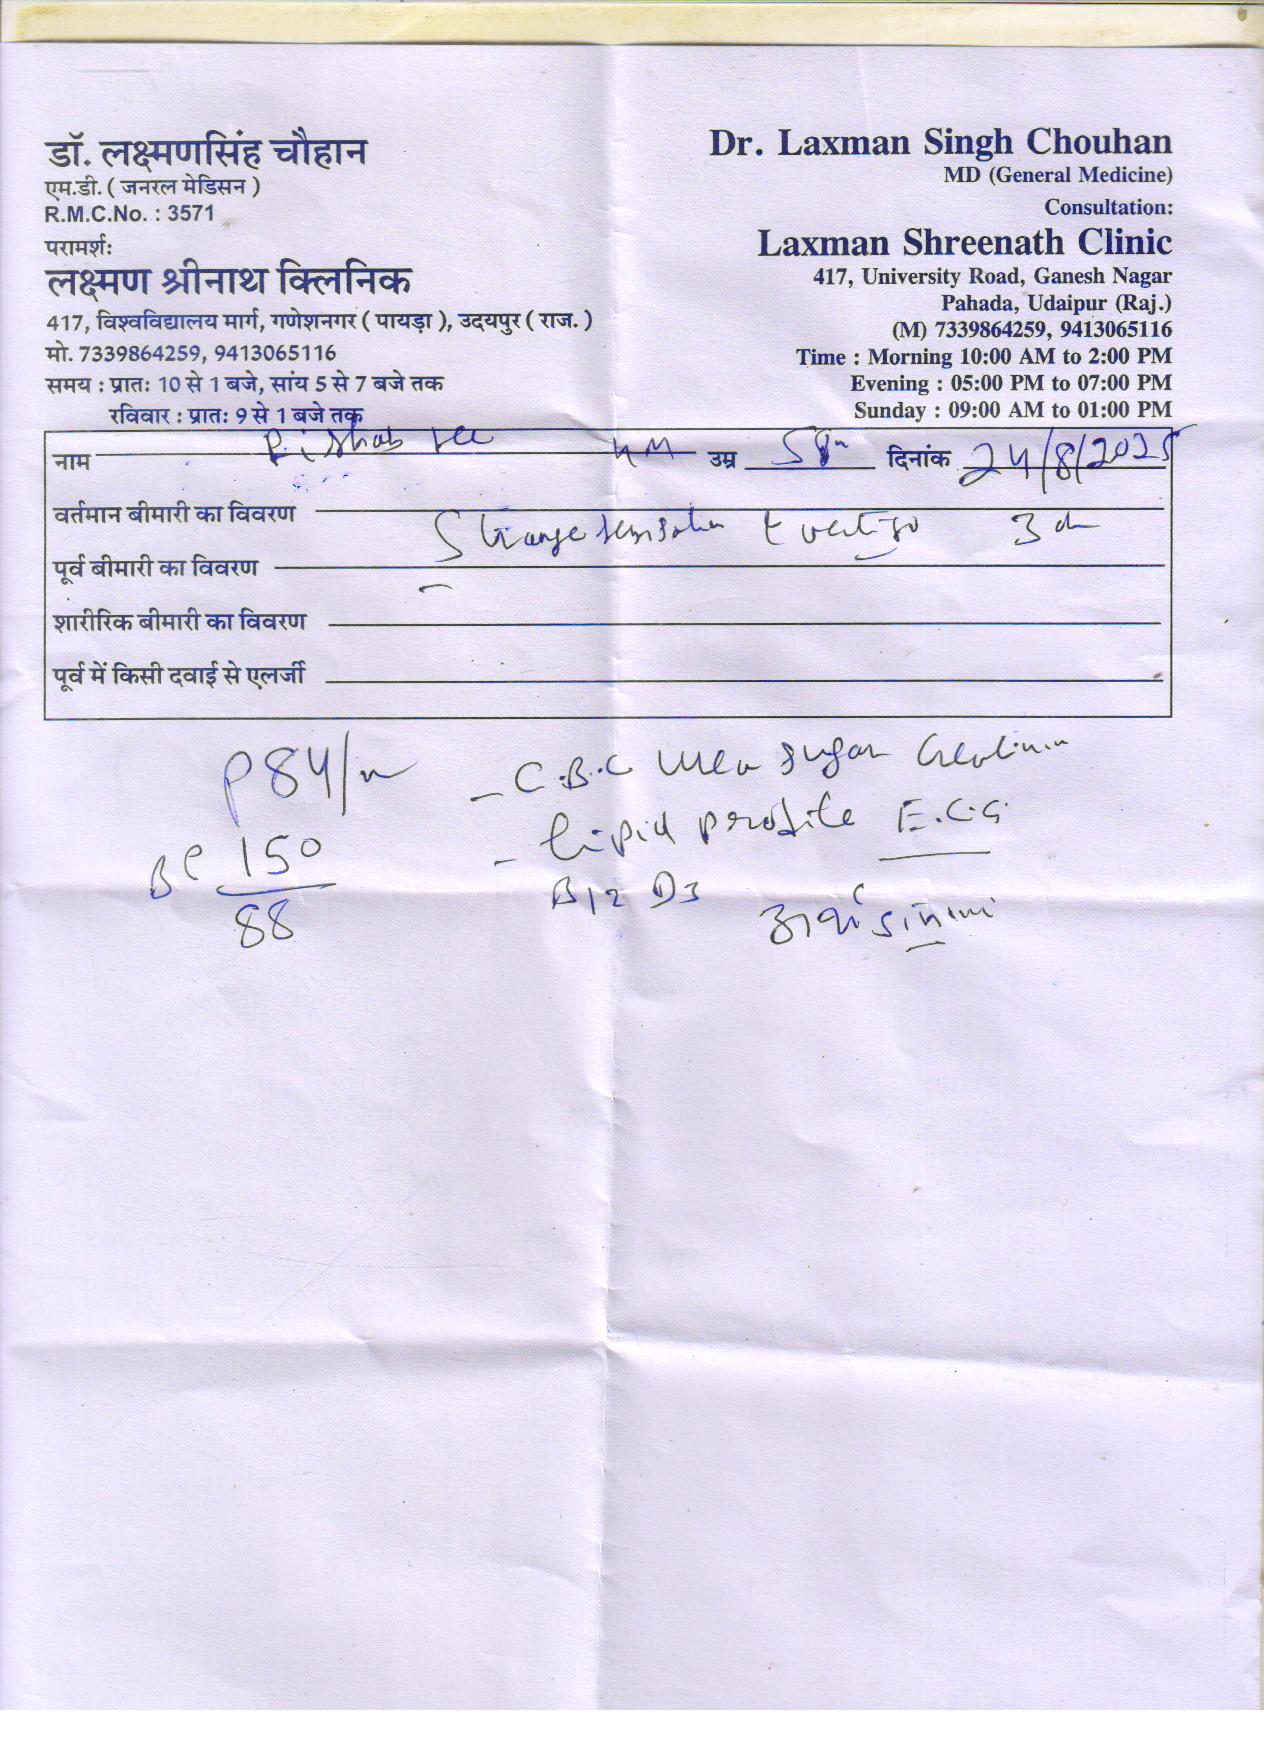 डॉ. लक्ष्मणसिंह चौहान
एम.डी. ( जनरल मेडिसन )
R.M.C.No. : 3571
परामर्शः
लक्ष्मण श्रीनाथ क्लिनिक
417, विश्वविद्यालय मार्ग, गणेशनगर ( पायड़ा ), उदयपुर ( राज. )
मो. 7339864259, 9413065116
समय : प्रातः 10 से 1 बजे, सांय 5 से 7 बजे तक
रविवार : प्रातः 9 से 1 बजे तक
Dr. Laxman Singh Chouhan
MD (General Medicine)
Consultation:
Laxman Shreenath Clinic
417, University Road, Ganesh Nagar
Pahada, Udaipur (Raj.)
(M) 7339864259, 9413065116
Time : Morning 10:00 AM to 2:00 PM
Evening : 05:00 PM to 07:00 PM
Sunday : 09:00 AM to 01:00 PM
नाम उम्र दिनांक 24/8/2025
वर्तमान बीमारी का विवरण
Strange sensation vertigo 3d
पूर्व बीमारी का विवरण
शारीरिक बीमारी का विवरण
पूर्व में किसी दवाई से एलर्जी
P 84/m
BP 150
88
- C.B.C Urea sugar Creatinin
- Lipid profile E.C.G
B12 D3